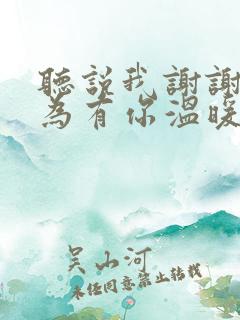 聽説我謝謝
為有你溫暖
吴山河
未经同意禁止转载